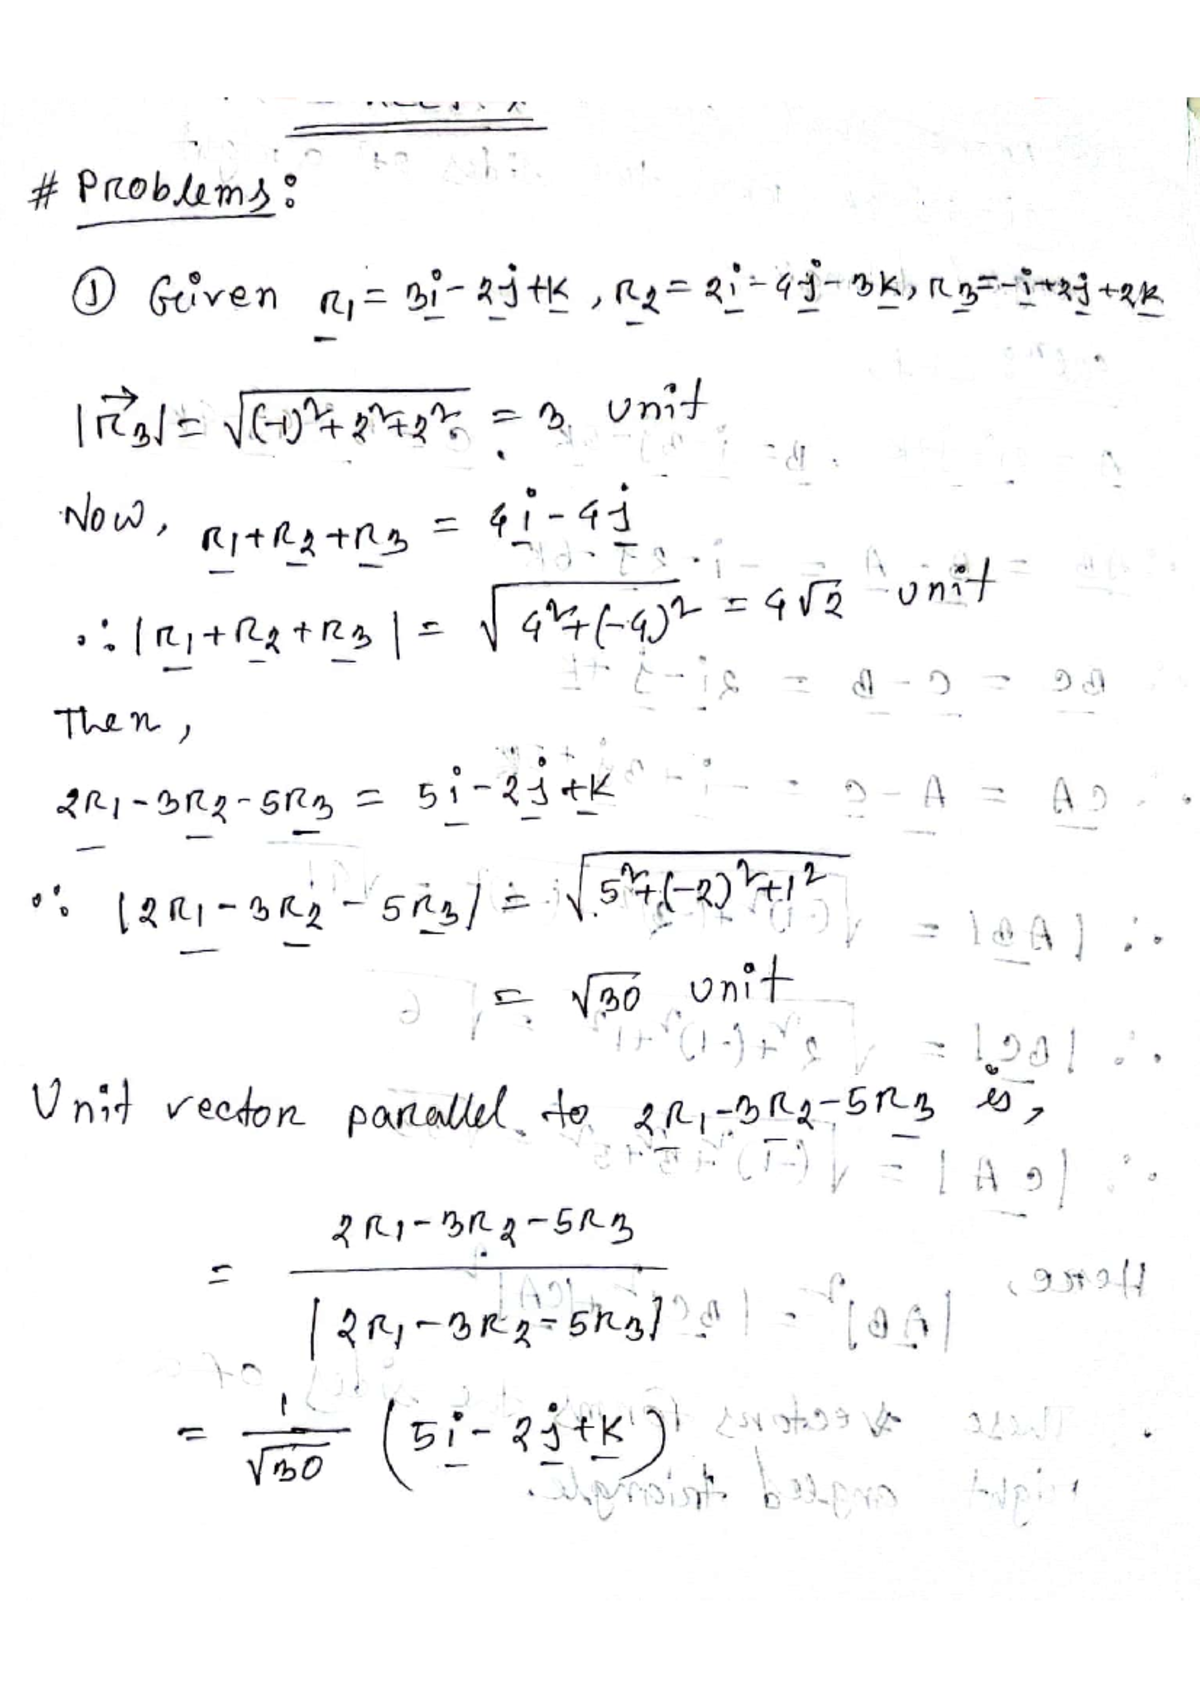 # Problems:
① Given r₁ = 3i - 2j + k, r₂ = 2i - 4j - 3k, r₃ = -i + 2j + 2k
|r⃗₃| = √((-1)² + 2² + 2²) = 3 unit
Now, r₁ + r₂ + r₃ = 4i - 4j
∴ |r₁ + r₂ + r₃| = √(4² + (-4)²) = 4√2 unit
Then,
2r₁ - 3r₂ - 5r₃ = 5i - 2j + k
∴ |2r₁ - 3r₂ - 5r₃| = √(5² + (-2)² + 1²)
= √30 unit
Unit vector parallel to 2r₁ - 3r₂ - 5r₃ is,
= (2r₁ - 3r₂ - 5r₃) / |2r₁ - 3r₂ - 5r₃|
= 1/√30 (5i - 2j + k)